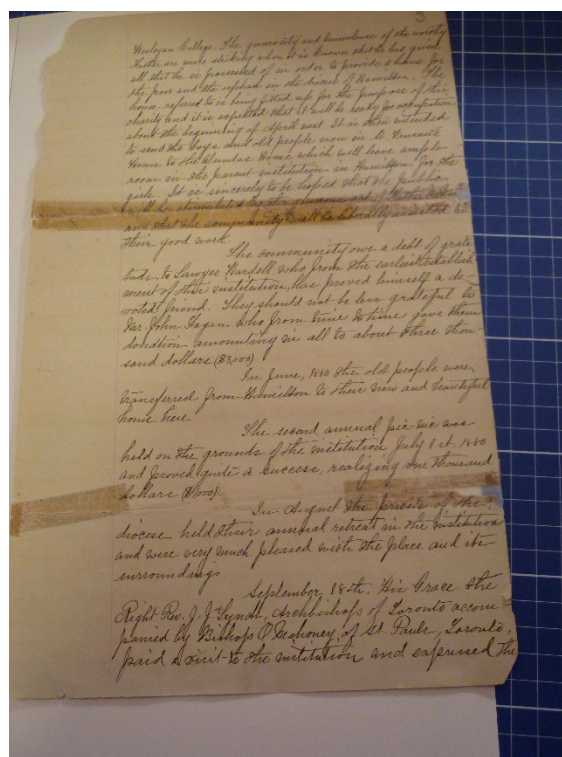 3
Wesleyan College. The generosity and benevolence of the worthy
Father are more striking when it is known that he has given
all that he is possessed of in order to provide a home for
the poor and the orphan in the diocese of Hamilton. The
house referred to is being fitted up for the purpose of this
charity and it is expected that it will be ready for occupation
about the beginning of April next. It is then intended
to send the boys and old people now in St. Vincent's
Home to the Dundas Home which will leave ample
room in the parent institution in Hamilton for the
girls. It is sincerely to be hoped that the public
will be stimulated by the generous act of Father
and that the community will be liberally assisted in
their good work.
The community owe a debt of grati-
tude to Lawyer Wardell who from the earliest establish
ment of this institution, has proved himself a de-
voted friend. They should not be less grateful to
Mr. John Fagan who from time to time gave them
donation amounting in all to about three thou-
sand dollars ($3,000)
In June, 1880 the old people were
transferred from Hamilton to their new and beautiful
home here
The second annual pic nic was
held on the grounds of the institution July 1st. 1880
and proved quite a success, realizing one thousand
dollars ($1,000)
In August the priests of the
diocese held their annual retreat in the institution
and were very much pleased with the place and its
surroundings
September, 18th. His Grace the
Right Rev. J. J. Lynch, Archbishop of Toronto accom-
panied by Bishop O'Mahoney, of St. Pauls, Toronto,
paid a visit to the institution and expressed the